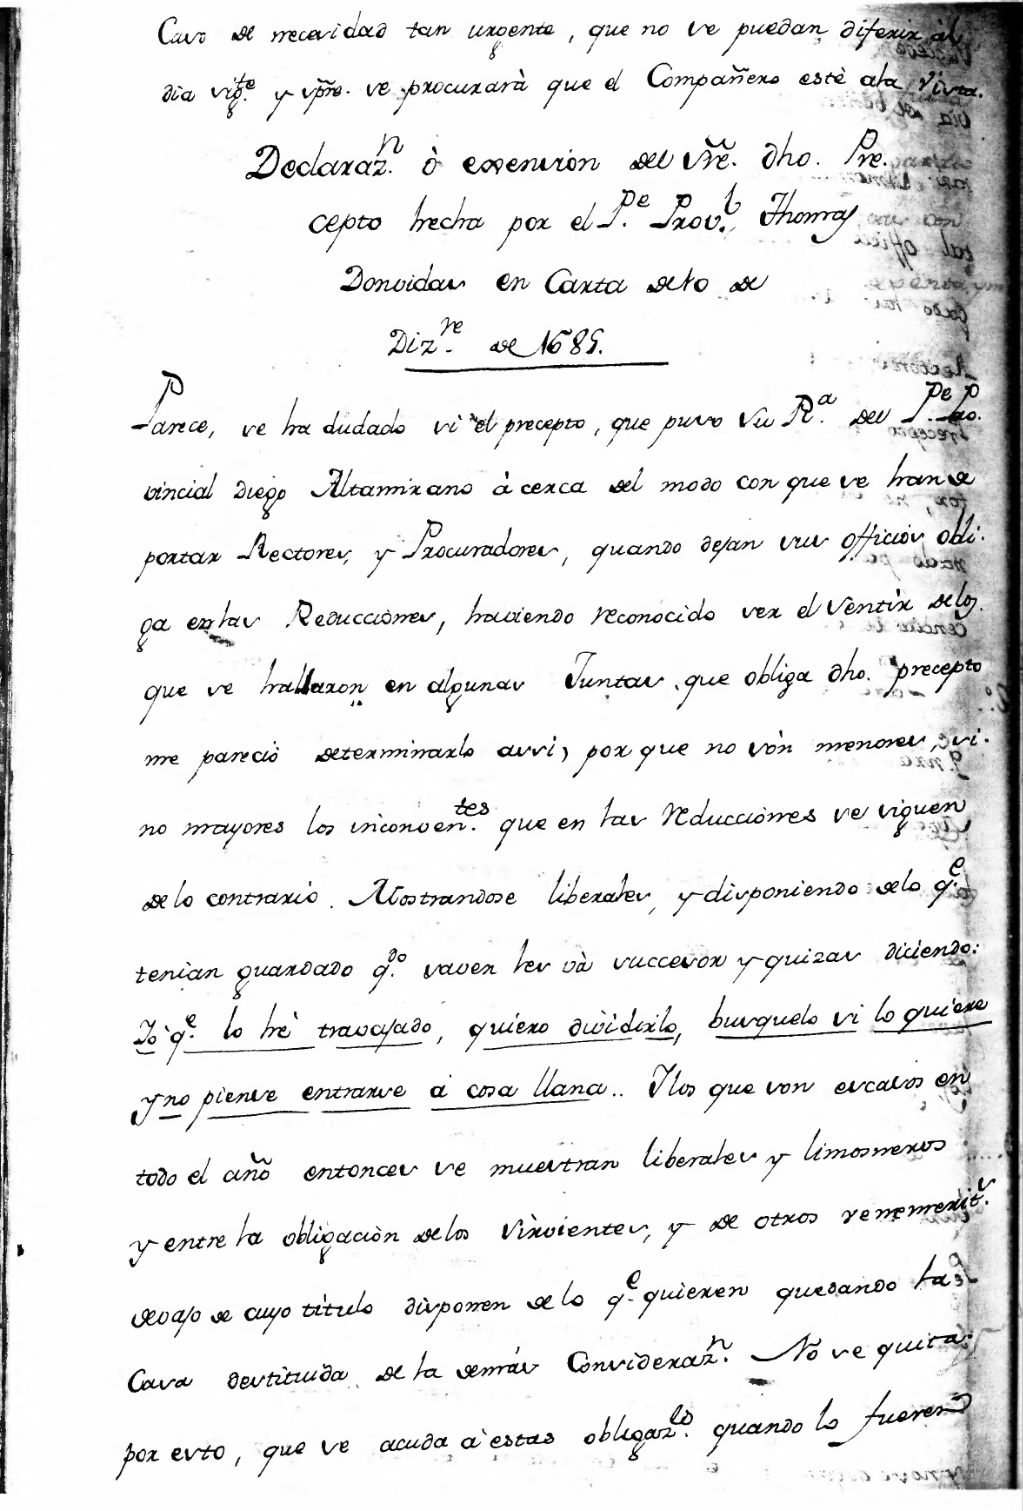 Caso de necesidad tan urgente, que no se puedan diferir al
dia sig.te y spre. se procurarà que el Compañero estè ala Vista.
Declaraz.n ò extension del sre. dho. Pre-
cepto hecha por el P.e Prov.l Thomas
Donvidas en Carta de 10 de
Diz.re de 1685.
Parece, se ha dudado si el precepto, que puso Su R.a del P.e Pro.
vincial Diego Altamirano à cerca del modo con que se han de
portar Rectores, y Procuradores, quando dejan sus officios obli-
ga en las Reducciònes, haviendo reconocido ser el Sentir de los
que se hallaron en algunas Juntas que obliga dho. precepto
me pareciò determinarlo assi, por que no sòn menores, si-
no mayores los inconven.tes que en las reducciònes se siguen
de lo contrario. Mostrandose liberales, y disponiendo de lo q.e
tenian guardado q.do saven les và successor y quizas diciendo:
Jò q.e lo hè travajado, quiero dividirlo, busquelo si lo quiere
y no piense entrarse à cosa llana.. Ilos que son escasos en
todo el año entonces se muestran liberales y limosneros
y entre la obligaciòn de los Sirvientes, y de otros venemerit.s
devajo de cuyo titulo disponen de lo q.e quieren quedando la
Casa destituida de la demàs Consideraz.n No se quita
por esto, que se acuda a estas obligaz.s quando lo fueren